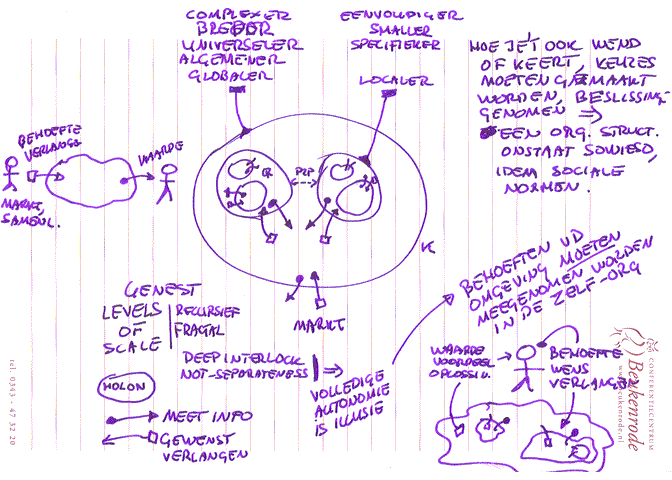 COMPLEXER
BREDER
UNIVERSELER
ALGEMENER
GLOBALER
EENVOUDIGER
SMALLER
SPECIFIEKER
LOCALER
HOE JE'T OOK WEND
OF KEERT, KEUZES
MOETEN GEMAAKT
WORDEN, BESLISSING
GENOMEN ⇒
EEN ORG. STRUCT.
ONSTAAT SOWIESO,
IDEM SOCIALE
NORMEN.
BEHOEFTE
VERLANGS
WAARDE
MARKT,
SAMENL.
P2P
K
MARKT
GENEST
LEVELS
OF
SCALE
RECURSIEF
FRACTAL
DEEP INTERLOCK
NOT-SEPARATENESS
⇒
VOLLEDIGE
AUTONOMIE
IS ILLUSIE
HOLON
MEET INFO
GEWENST
VERLANGEN
BEHOEFTEN VD
OMGEVING MOETEN
MEEGENOMEN WORDEN
IN DE ZELF-ORG
WAARDE
VOORDEEL
BEHOEFTE
WENS
VERLANGEN
CONFERENTIECENTRUM
Beukenrode
tel. 0343 - 47 32 20